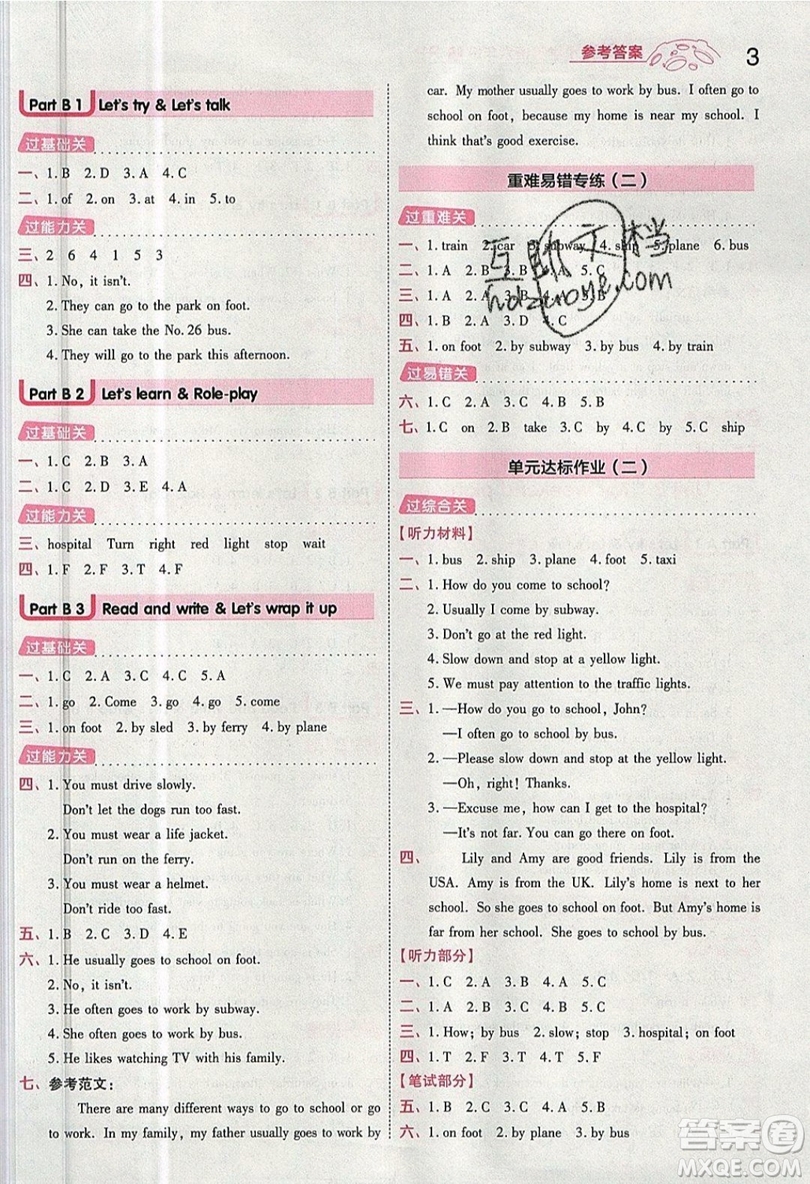 参考答案
3
Part B 1 Let's try & Let's talk
过基础关
一、1. B 2. D 3. A 4. C
二、1. of 2. on 3. at 4. in 5. to
过能力关
三、2 6 4 1 5 3
四、1. No, it isn't.
2. They can go to the park on foot.
3. She can take the No. 26 bus.
4. They will go to the park this afternoon.
Part B 2 Let's learn & Role-play
过基础关
一、1. C 2. B 3. D 4. A
二、1. C 2. D 3. E 4. B 5. A
过能力关
三、hospital Turn right red light stop wait
四、1. F 2. F 3. T 4. F
Part B 3 Read and write & Let's wrap it up
过基础关
一、1. C 2. C 3. C 4. C 5. A
二、1. go 2. Come 3. go 4. go 5. come
三、1. on foot 2. by sled 3. by ferry 4. by plane
过能力关
四、1. You must drive slowly.
Don't let the dogs run too fast.
2. You must wear a life jacket.
Don't run on the ferry.
3. You must wear a helmet.
Don't ride too fast.
五、1. B 2. C 3. D 4. E
六、1. He usually goes to school on foot.
2. No, it isn't.
3. He often goes to work by subway.
4. She often goes to work by bus.
5. He likes watching TV with his family.
七、参考范文:
There are many different ways to go to school or go
to work. In my family, my father usually goes to work by
car. My mother usually goes to work by bus. I often go to
school on foot, because my home is near my school. I
think that's good exercise.
重难易错专练（二）
过重难关
一、1. train 2. car 3. subway 4. ship 5. plane 6. bus
二、1. A 2. B 3. B 4. A 5. C
三、1. C 2. A 3. B 4. B 5. B
四、1. B 2. A 3. D 4. C
五、1. on foot 2. by subway 3. by bus 4. by train
过易错关
六、1. C 2. A 3. C 4. B 5. B
七、1. C on 2. B take 3. B by 4. C ship
单元达标作业（二）
过综合关
【听力材料】
一、1. bus 2. ship 3. plane 4. on foot 5. taxi
二、1. How do you come to school?
2. Usually I come by subway.
3. Don't go at the red light.
4. Slow down and stop at a yellow light.
5. We must pay attention to the traffic lights.
三、1. —How do you go to school, John?
—I often go to school by bus.
2. —Please slow down and stop at a yellow light.
—Oh, right! Thanks.
3. —Excuse me, how can I get to the hospital?
—It's not far. You can go there on foot.
四、Lily and Amy are good friends. Lily is from the
USA. Amy is from the UK. Lily's home is next to her
school. So she goes to school on foot. But Amy's home is
far from her school. She often goes to school by subway.
【听力部分】
一、1. C 2. A 3. B 4. A 5. C
二、1. C 2. A 3. B 4. A 5. C
三、1. How; by bus 2. slow; stop 3. hospital; on foot
四、1. T 2. F 3. F 4. T
【笔试部分】
五、1. B 2. C 3. D 4. A 5. B
六、1. on foot 2. by plane 3. by bus 4. by ship
互助文档
hdzuoye.com
答案圈
MXQE.COM